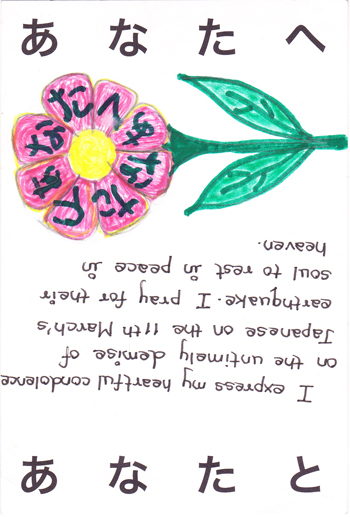 あなたへ
あなたへ
あなたへ
I express my heartful condolence
on the untimely demise of
Japanese on the 11th March's
earthquake. I pray for their
soul to rest in peace in
heaven.
あなたと